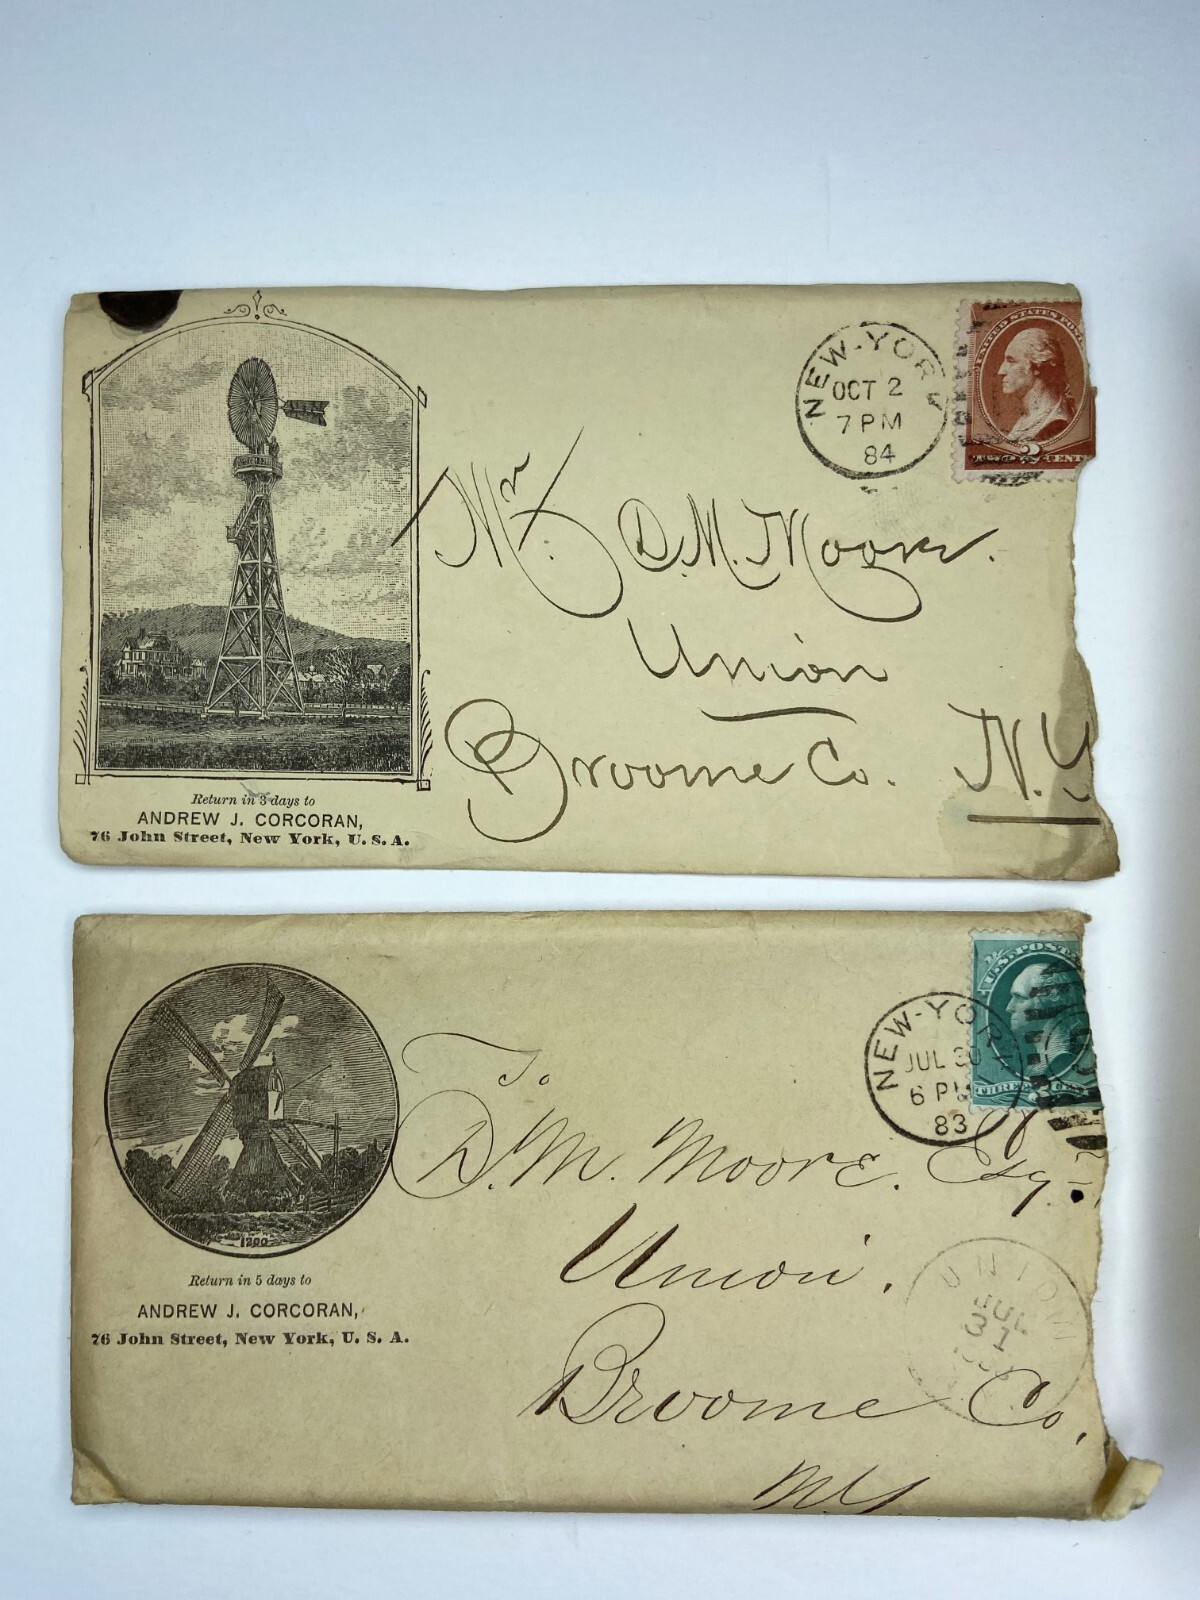 NEW-YORK
OCT 2
7 PM
84
UNITED STATES POST
2
CENT
Mr. D. M. Moore.
Union
Broome Co. N.Y
Return in 3 days to
ANDREW J. CORCORAN,
76 John Street, New York, U. S. A.
U.S. POSTA
THREE
NEW-YORK
JUL 30
6 PM
83
To
D. M. Moore. Esq.
Union.
UNION
JUL
31
Broome Co,
N.Y.
1200
Return in 5 days to
ANDREW J. CORCORAN,
76 John Street, New York, U. S. A.